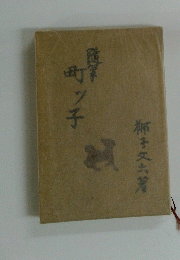 随筆
町ッ子
獅子文六著